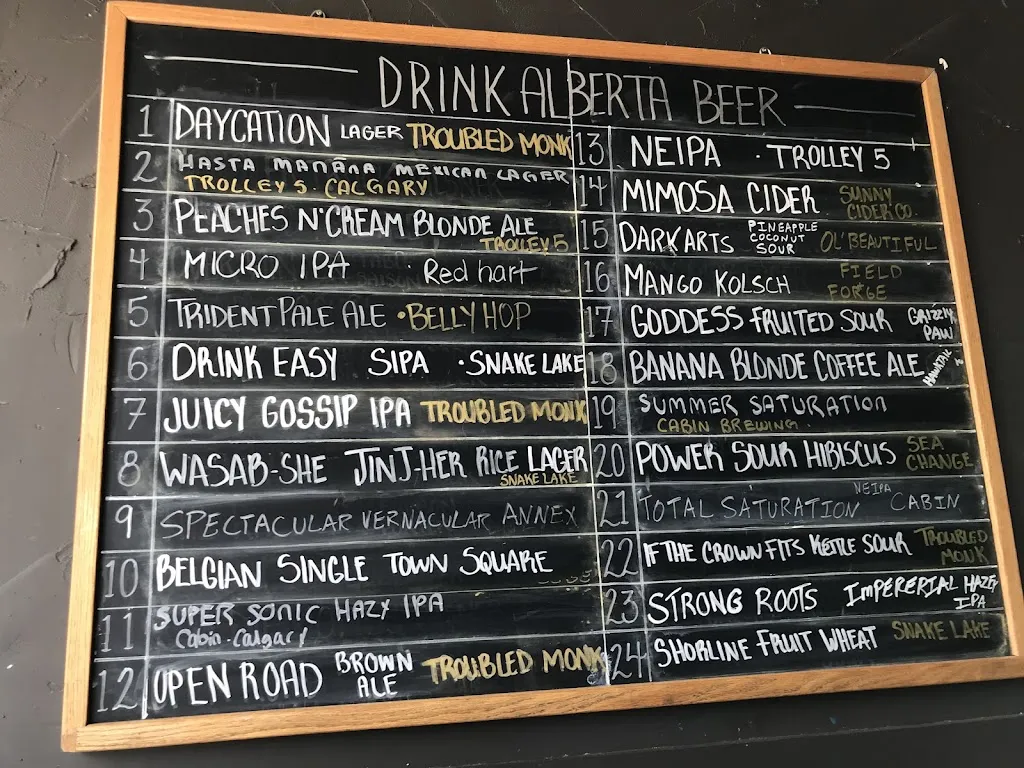 DRINK ALBERTA BEER
1 DAYCATION LAGER TROUBLED MONK
2 HASTA MAÑANA MEXICAN LAGER
TROLLEY 5 · CALGARY
3 PEACHES N' CREAM BLONDE ALE
TROLLEY 5
4 MICRO IPA · Red hart
5 TRIDENT PALE ALE · BELLY HOP
6 DRINK EASY SIPA · SNAKE LAKE
7 JUICY GOSSIP IPA TROUBLED MONK
8 WASAB-SHE JINJ-HER RICE LAGER
SNAKE LAKE
9 SPECTACULAR VERNACULAR ANNEX
10 BELGIAN SINGLE TOWN SQUARE
11 SUPER SONIC HAZY IPA
Cabin - Calgary
12 OPEN ROAD BROWN ALE TROUBLED MONK
13 NEIPA · TROLLEY 5
14 MIMOSA CIDER SUNNY CIDER CO
15 DARK ARTS PINEAPPLE COCONUT SOUR OL' BEAUTIFUL
16 MANGO KOLSCH FIELD FORGE
17 GODDESS FRUITED SOUR GRIZZLY PAW
18 BANANA BLONDE COFFEE ALE HAWKTAIL
19 SUMMER SATURATION
CABIN BREWING.
20 POWER SOUR HIBISCUS SEA CHANGE
21 TOTAL SATURATION NEIPA CABIN
22 IF THE CROWN FITS KETTLE SOUR TROUBLED MONK
23 STRONG ROOTS IMPERERIAL HAZEY IPA
24 SHORLINE FRUIT WHEAT SNAKE LAKE